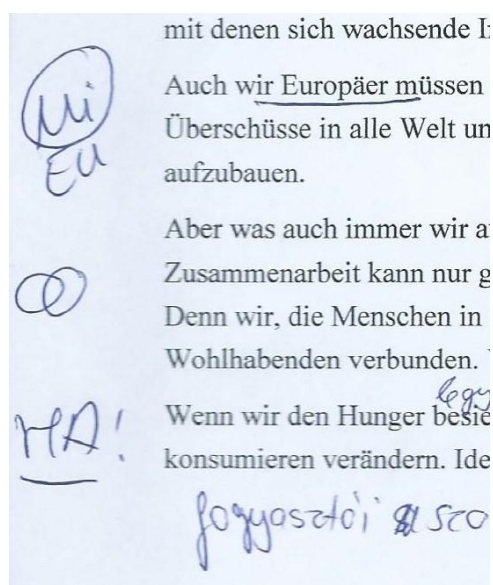 mit denen sich wachsende
Mi
Auch wir Europäer müssen
EU
Überschüsse in alle Welt
aufzubauen.
Aber was auch immer wir
Zusammenarbeit kann nur
Denn wir, die Menschen in
Wohlhabenden verbunden.
MA!
Wenn wir den Hunger
konsumieren verändern.
fogyasztói